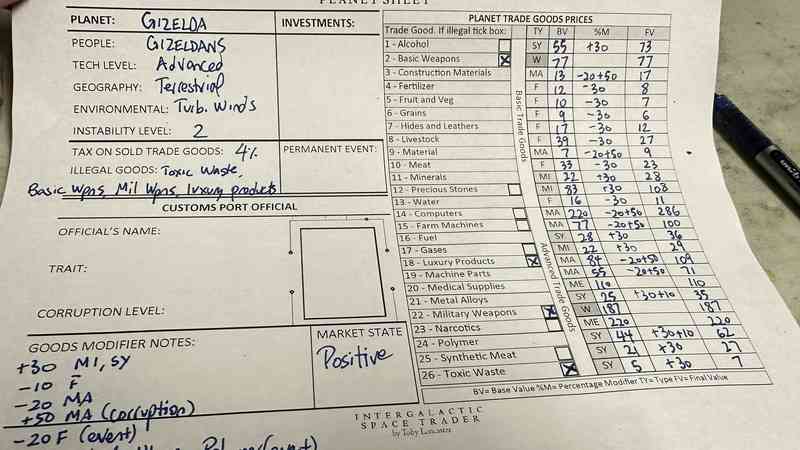 PLANET SHEET
PLANET: GIZELDA
PEOPLE: GIZELDANS
TECH LEVEL: Advanced
GEOGRAPHY: Terrestrial
ENVIRONMENTAL: Turb. Winds
INSTABILITY LEVEL: 2
TAX ON SOLD TRADE GOODS: 4%
ILLEGAL GOODS: Toxic Waste,
Basic Wpns, Mil Wpns, luxury products
INVESTMENTS:
PERMANENT EVENT:
CUSTOMS PORT OFFICIAL
OFFICIAL'S NAME:
TRAIT:
CORRUPTION LEVEL:
GOODS MODIFIER NOTES:
+30 MI, SY
-10 F
-20 MA
+50 MA (corruption)
-20 F (event)
MARKET STATE
Positive
PLANET TRADE GOODS PRICES
Trade Good. If illegal tick box: TY BV %M FV
1 - Alcohol SY 55 +30 73
2 - Basic Weapons W 77 77
3 - Construction Materials MA 13 -20+50 17
4 - Fertilizer F 12 -30 8
5 - Fruit and Veg F 10 -30 7
6 - Grains F 9 -30 6
7 - Hides and Leathers F 17 -30 12
8 - Livestock F 39 -30 27
9 - Material MA 7 -20+50 9
10 - Meat F 33 -30 23
11 - Minerals MI 22 +30 28
12 - Precious Stones MI 83 +30 108
13 - Water F 16 -30 11
14 - Computers MA 220 -20+50 286
15 - Farm Machines MA 77 -20+50 100
16 - Fuel SY 28 +30 36
17 - Gases MI 22 +30 29
18 - Luxury Products MA 84 -20+50 109
19 - Machine Parts MA 55 -20+50 71
20 - Medical Supplies ME 110 110
21 - Metal Alloys SY 25 +30+10 35
22 - Military Weapons W 187 187
23 - Narcotics ME 220 220
24 - Polymer SY 44 +30+10 62
25 - Synthetic Meat SY 21 +30 27
26 - Toxic Waste SY 5 +30 7
Basic Trade Goods
Advanced Trade Goods
BV= Base Value %M= Percentage Modifier TY= Type FV= Final Value
INTERGALACTIC
SPACE TRADER
by Toby Lancaster